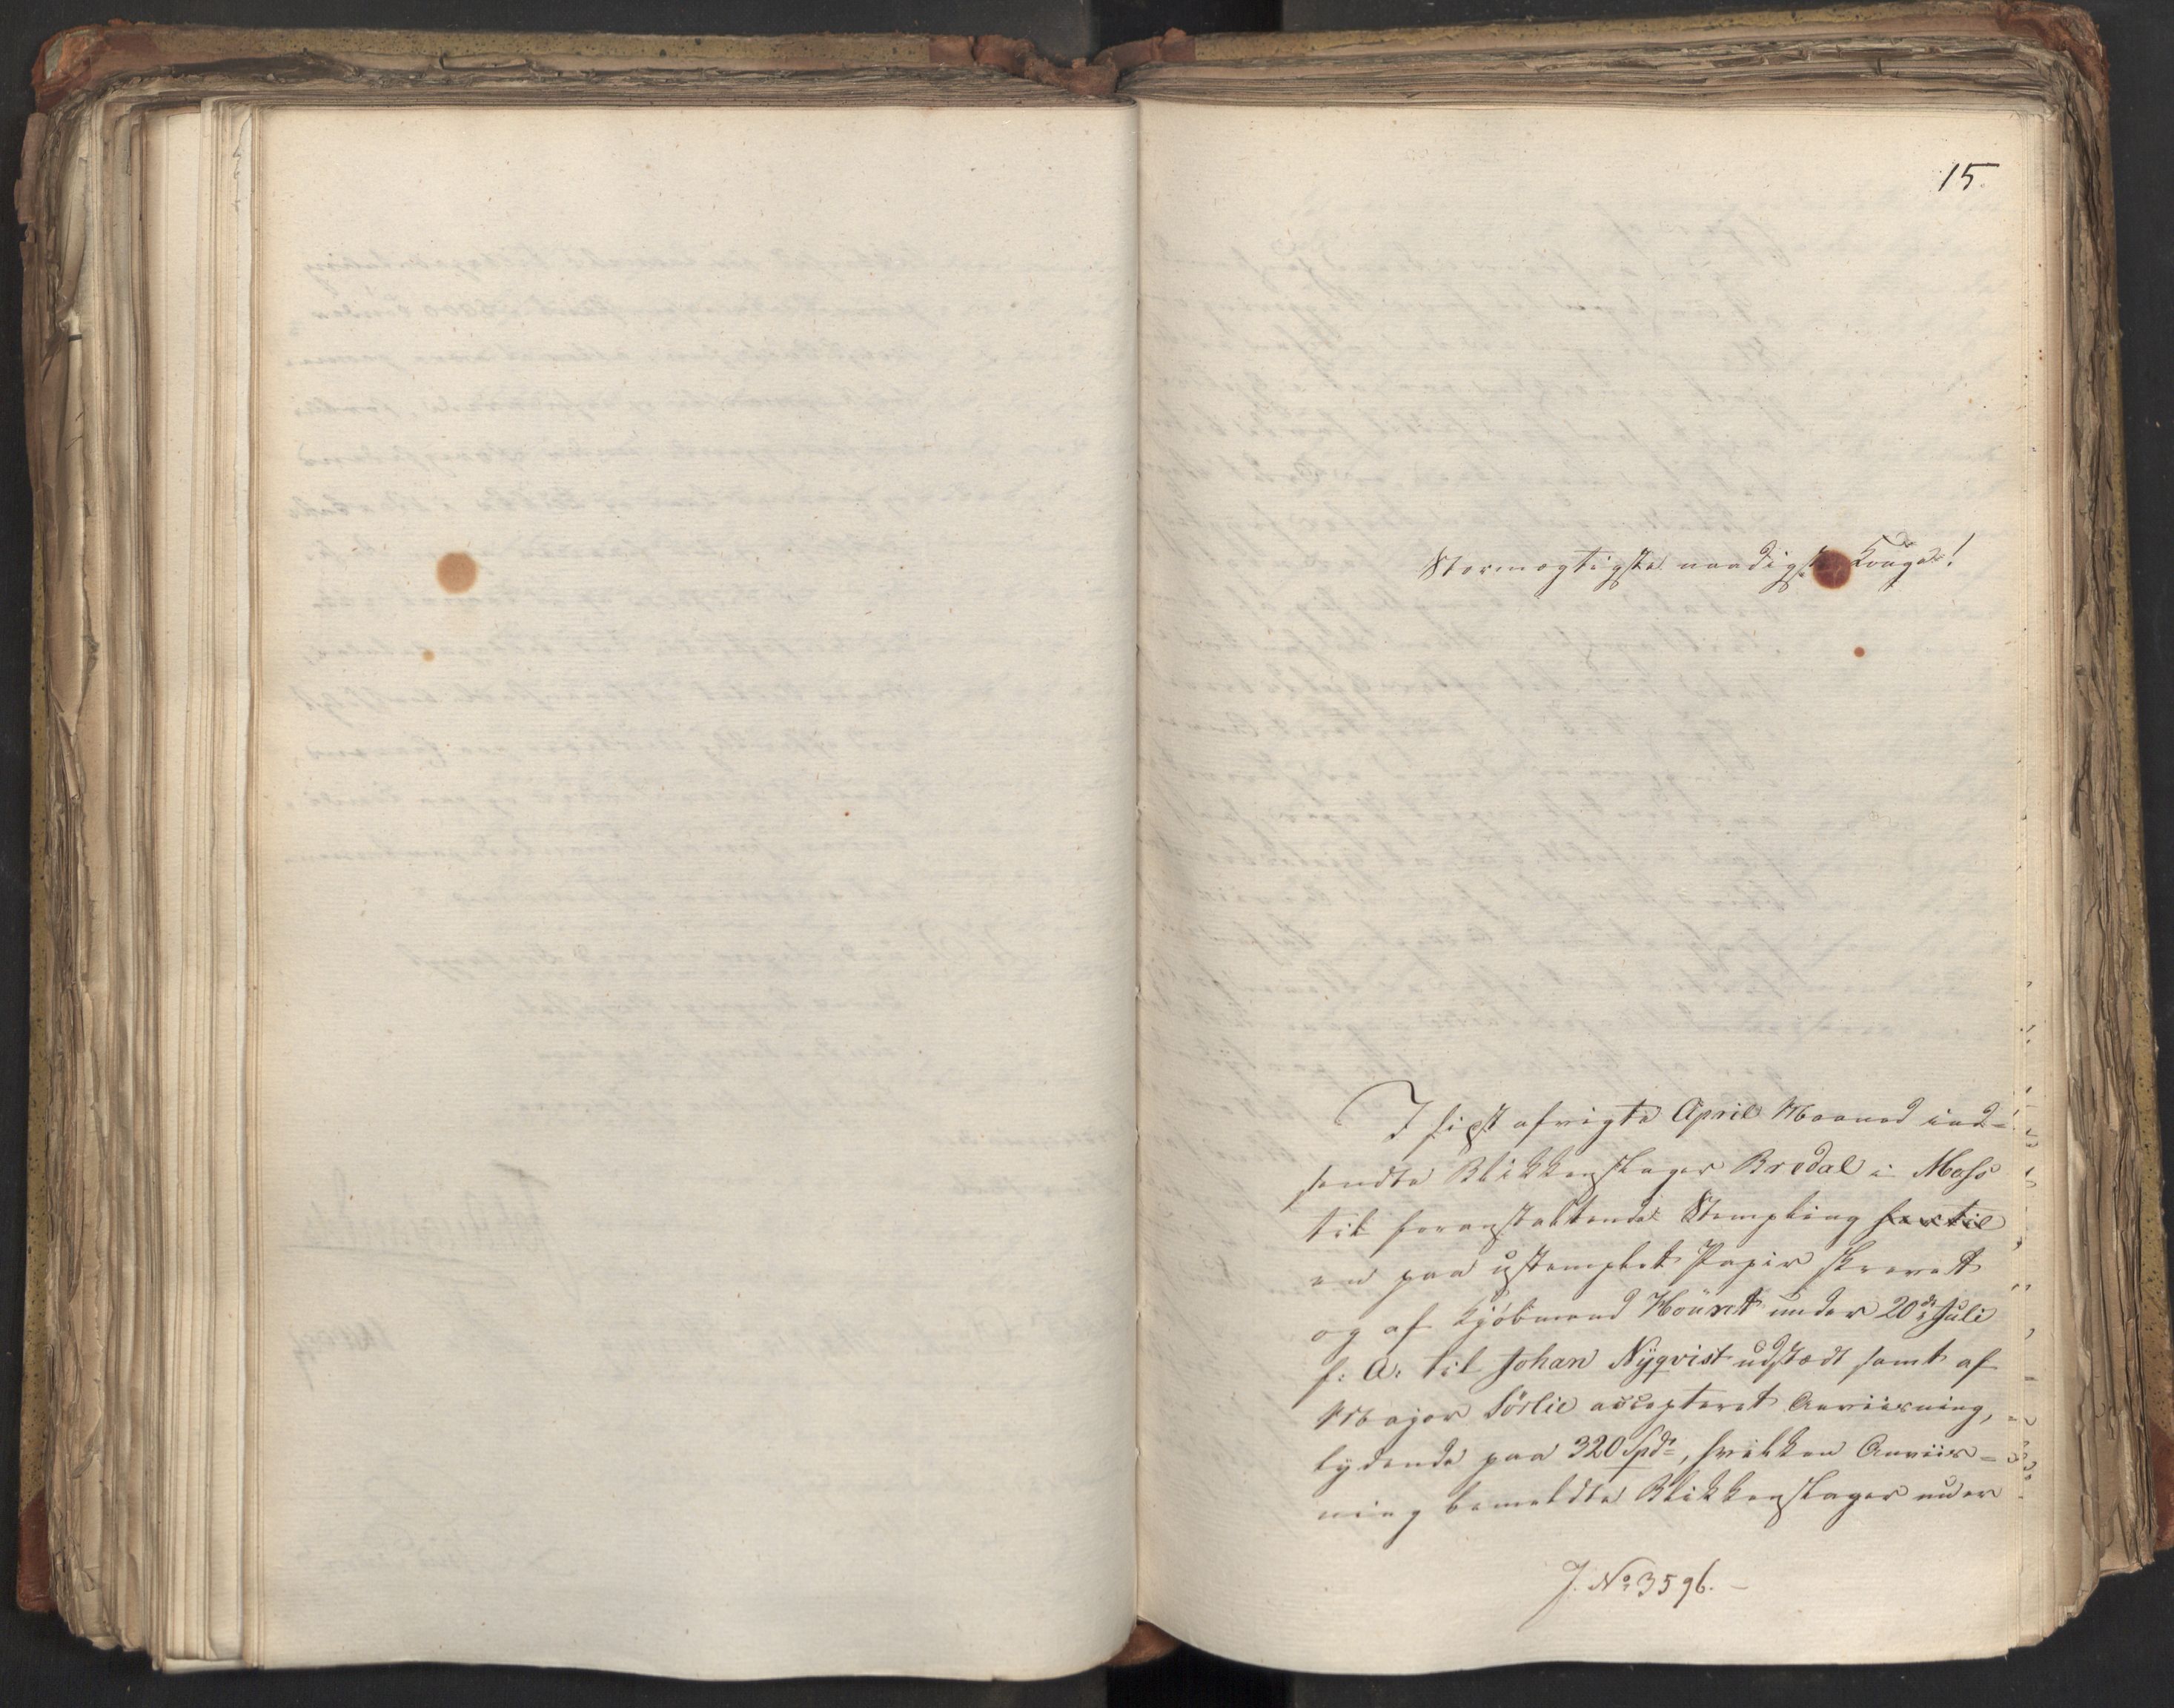 15.
Stormægtigste naadigste Konge!
I sidst afvigte April Maaned ind-
sendte Blikkenslager Bredal i Moss
til foranstaltende Stempling
en paa ustemplet Papir skrevet
og af Kjøbmand Hount under 20de Juli
f: A: til Johan Nyqvist udstædt samt af
Major Sørlie accepteret Anviisning,
lydende paa 320 Spdr, hvilken Anviis-
ning bemeldte Blikkenslager under
J. No 3596.